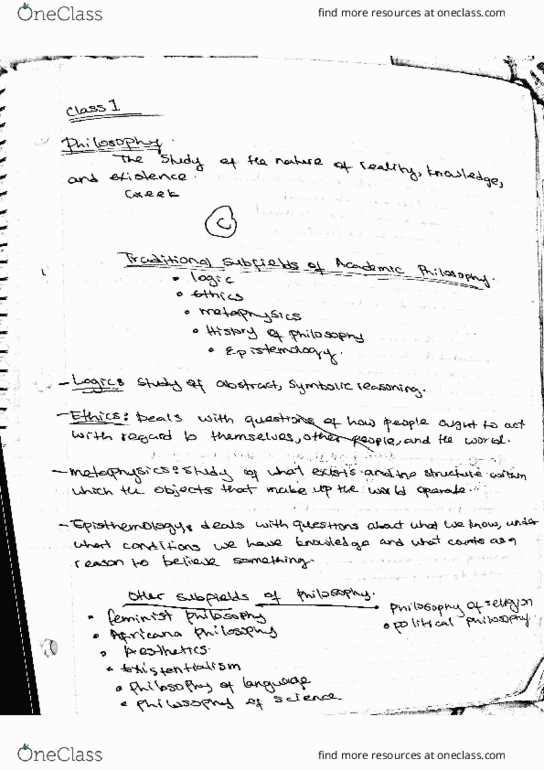 OneClass
find more resources at oneclass.com
Class 1
Philosophy.
The study of the nature of reality, knowledge,
and existence.
Greek
C
Traditional Subfields of Academic Philosophy.
• Logic
• Ethics
• metaphysics
• History of Philosophy
• Epistemology.
- Logic: Study of abstract, Symbolic reasoning.
- Ethics: Deals with questions of how people ought to act
with regard to themselves, other people, and the world.
- metaphysics: Study of what exists and the structure within
which the objects that make up the world operate.
- Episthemology: deals with questions about what we know, under
what conditions we have knowledge and what counts as a
reason to believe something.
Other subfields of Philosophy.
• feminist philosophy
• Africana Philosophy
• Aesthetics.
• Existentialism
• Philosophy of language
• Philosophy of science
• Philosophy of religion
• political philosophy.
OneClass
find more resources at oneclass.com